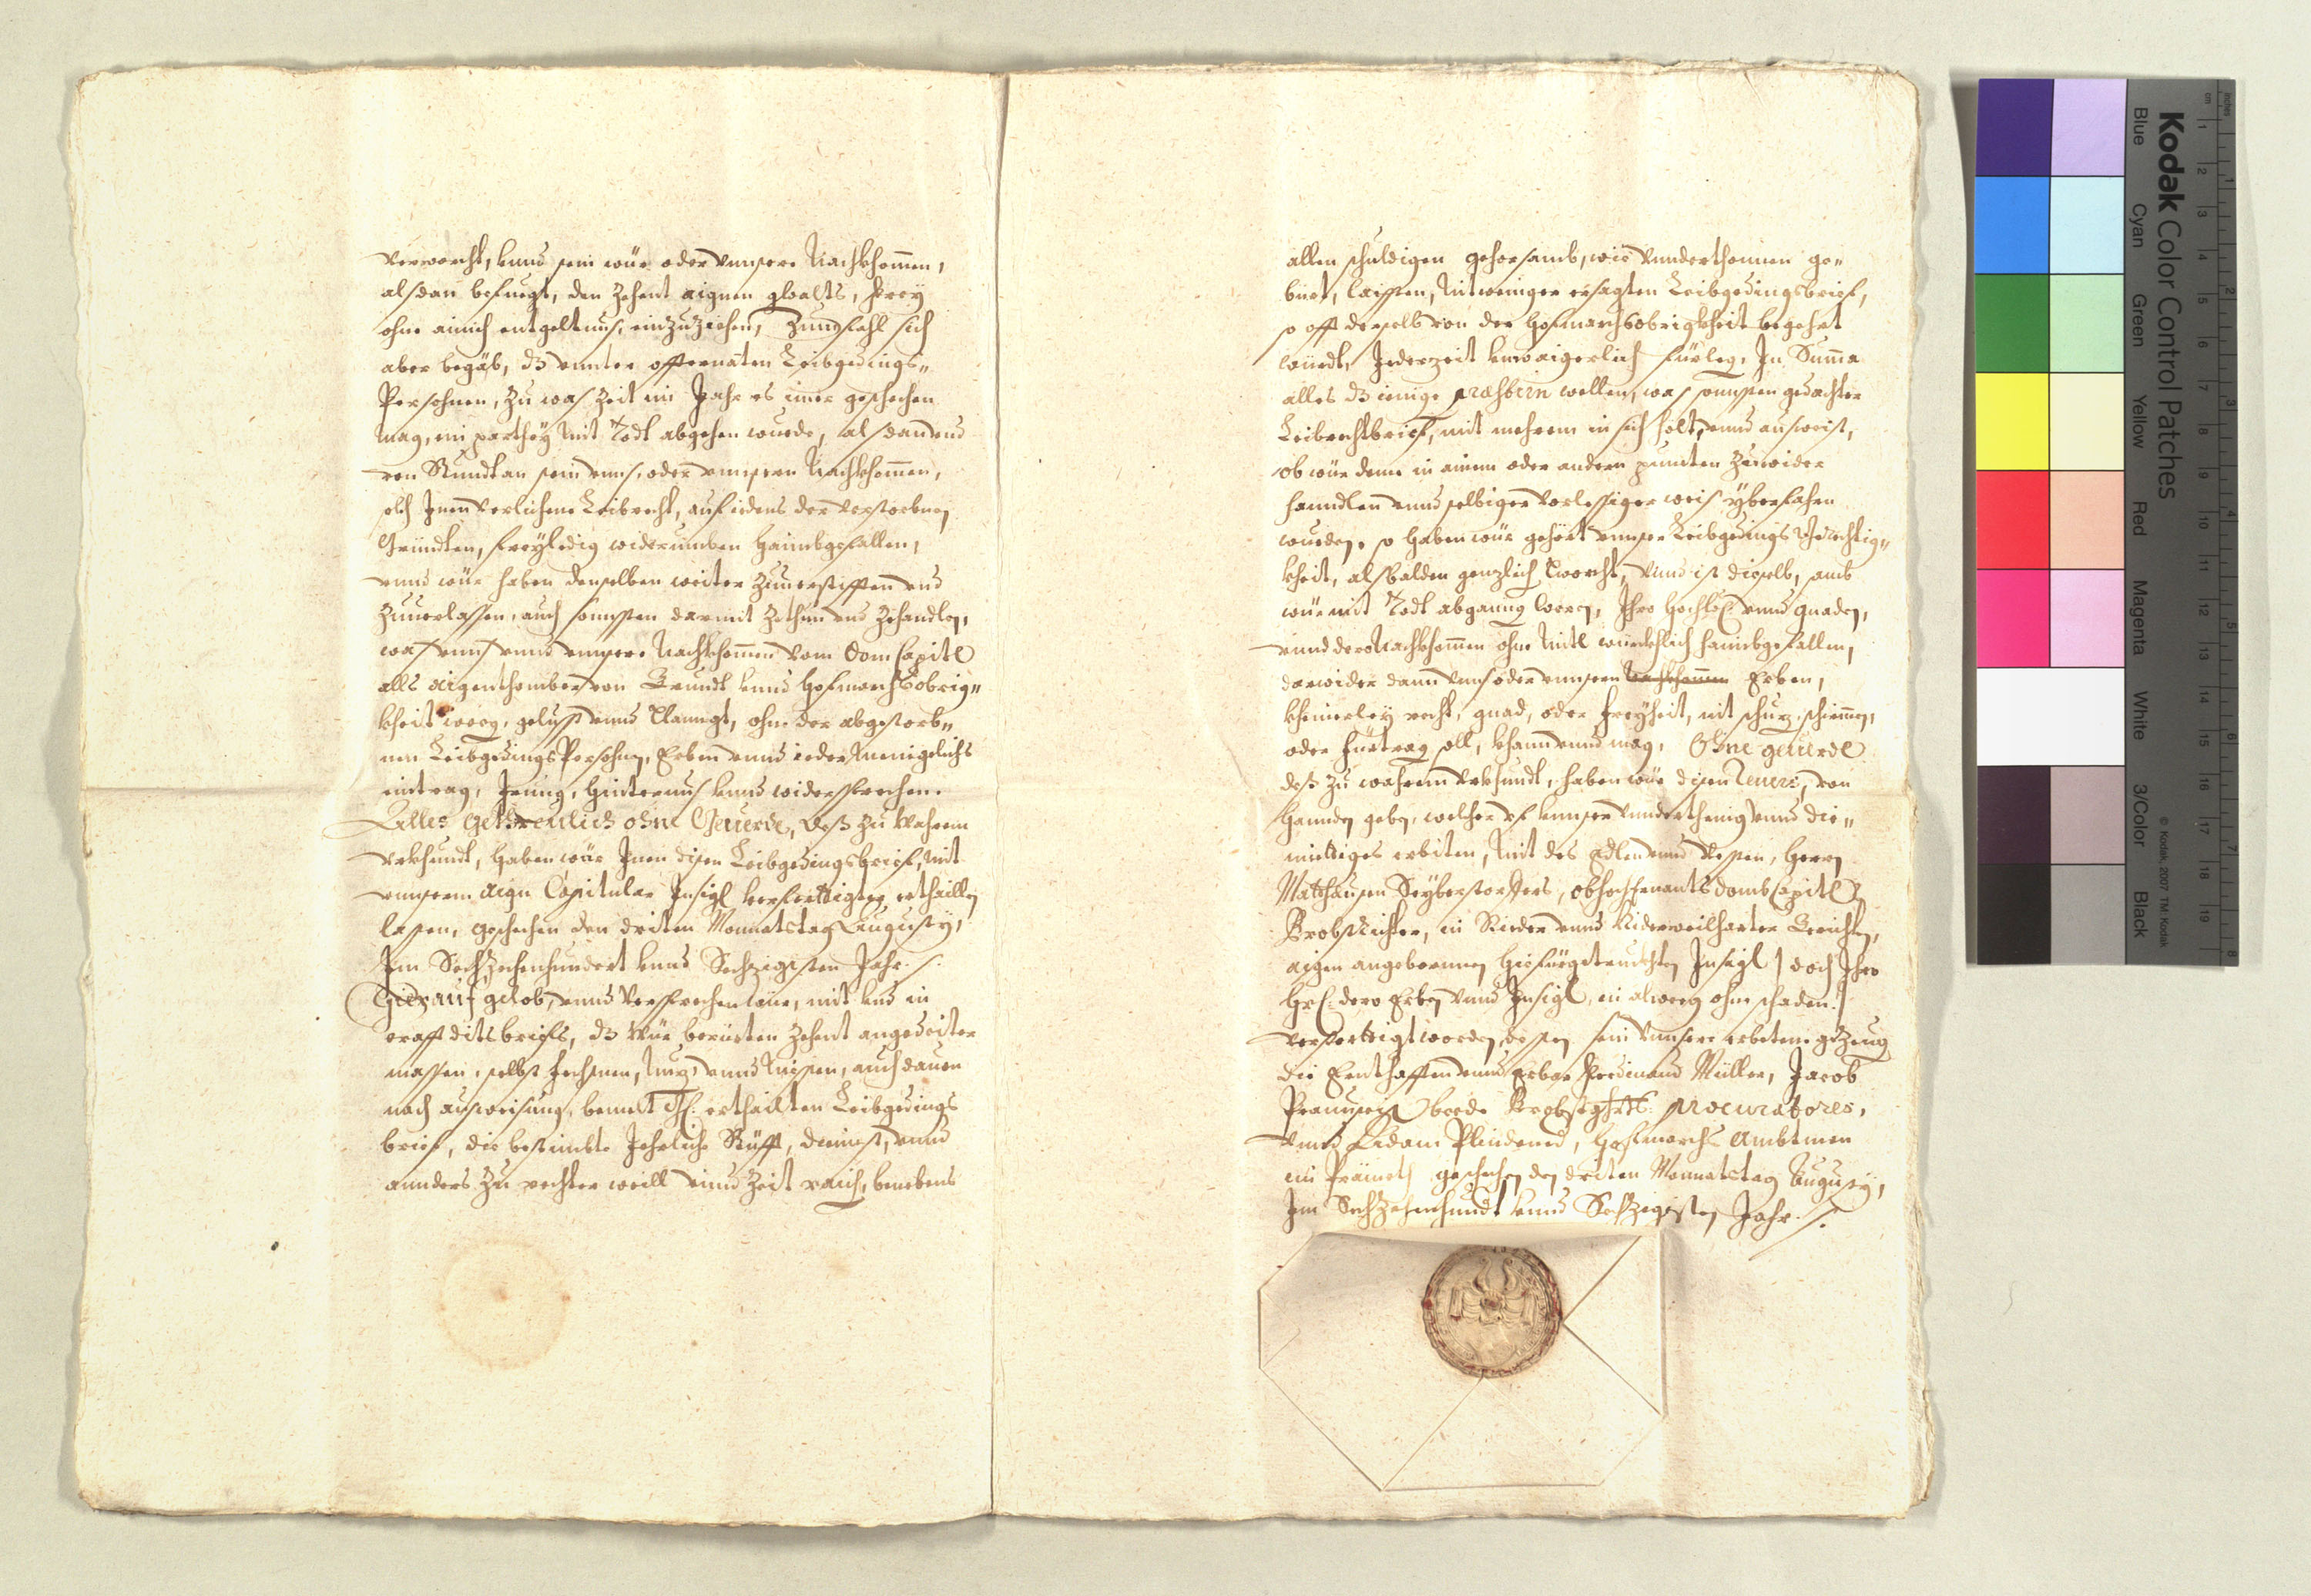 verworcht, vnnd sein wür oder vnnsere Nachkhomen,
alsdan befuegt, den Zehent aignen gwalts, frey
ohne ainich entgeltnus, einzuziehen, Zumfahl sich
aber begäb, dz vnnter offternanten Leibgedings„
Persohnen, zu was Zeit im Jahr es imer geschechen
mag, ein parthey mit Todt abgehen wurde, alsdan vnd
von Stundt an sein vnns, oder vnnsern Nachkhomen,
solch Jnen verlichene Leibrecht, auf iedens der verstorbnen
Gründten, freyledig widerumben haimbgefallen,
vnnd wür haben denselben weiter zuuerstifften vnd
zuuerlassen, auch sonnsten darmit zethun vnd zehandlen,
was vnns vnnd vnnsere Nachkhomen vom Dom Capitl
alls aigenthomber von Grundt vnnd Hofmarchsobrig„
kheit weeg, gelust vnnd Glanngt, ohne der abgestorb„
nen Leibgedings Persohnen, Erben vnnd iedermenigelichs
eintrag, Jrung, Hinternus vnnd widersprechen.
Alles gethreulich ohne Geuerde, Deß zu Wahrem
Vrkhundt, haben wür Jnen disen Leibgedingsbrief, mit
vnnserm aign Capitular Jnsigl verferttigter erthaillen
lassen, geschechen den driten Monnatstag Augusty,
Jm Sechzechenhundert vnnd Sechzigisten Jahr ./.
Hierauf gelob, vnnd versprechen wür, mit vnd in
crafft dits briefs, dz Wür berürten Zehent angedeiter
massen, selbst fechsnen, Nuzen vnnd Niessen, auch dauon
nach ausweisung, bemelt erthailten Leibgedings
brief, die bestimbte Jehrliche Stüfft, diennst, vnnd
annders zu rechter weill vnnd Zeit raich, benebens
allen schuldigen gehorsamb, wie vnnderthonnen ge„
bürt, laisten, nit weniger ersagten Leibgedingsbrief,
so offt derselb von der Hofmarchsobrigkheit begehrt
würdt, Jederzeit vnwaigerlich fürleg, Jn Suma
alles dz ienige præstirn wellen, was sonnsten gedachter
Leibrechtbrief, mit mehrem in sich holt, vnnd ausweist,
ob wür denn in ainem oder andern puncten zuwider
hanndlen vnnd selbigen verlessiger weis yberfahren
wurden, so haben wür gehört vnnser Leibgedings Gerechtig„
kheit, alsbalden genzlich verworcht, vnnd ist dieselb, samb
wür mit Todt abganng weren, Jhro Hochfr: vnnd gnaden,
vnnd dero Nachkhomen ohne Mitl würckhlich haimbgefallen,
darwider dann vnns oder vnnsern Nachkhomen Erben,
kheinerley recht, gnad, oder freyheit, nit schuz, schirmen,
oder fürtrag soll, khann vnnd mag, Ohne geuerde
deß zu wahrem Vrkhundt, haben wür disen Reuers, von
hannden geben, welcher vf vnnser vnnderthenig vnnd die„
miettiges erbiten, mit des Edlen vnnd Vessten, Herrn
Matthäusen Seyberstorffers, obhochernants Domb Capitl
Brobstrichter, in Rieder vnnd Niderweilharter Gerichten,
aigen angebornnen hiefürgetruckhten Jnsigl | doch Jhro
Hr: dero Erben vnnd Jnsigl, in alweeg ohne schaden |
verferttigt worden, dessen sein vnnsere erbetene gezeug
die Ernthafften vnnd Erbar Ferdinand Müller, Jacob
beede Brobstgrts: procuratores,
vnnd Adam, Hofmarchs Ambtman
geschechen den driten Monnatstag Augusty,
Jm Sechzechenhundt vnnd Sechzigisten Jahr ./.
Kodak Color Control Patches
Blue Cyan Green Yellow Red Magenta White 3/Color Black
© Kodak, 2007 TM: Kodak
inches 1 2 3 4 5 6 7 8
cm 1 2 3 4 5 6 7 8 9 10 11 12 13 14 15 16 17 18 19